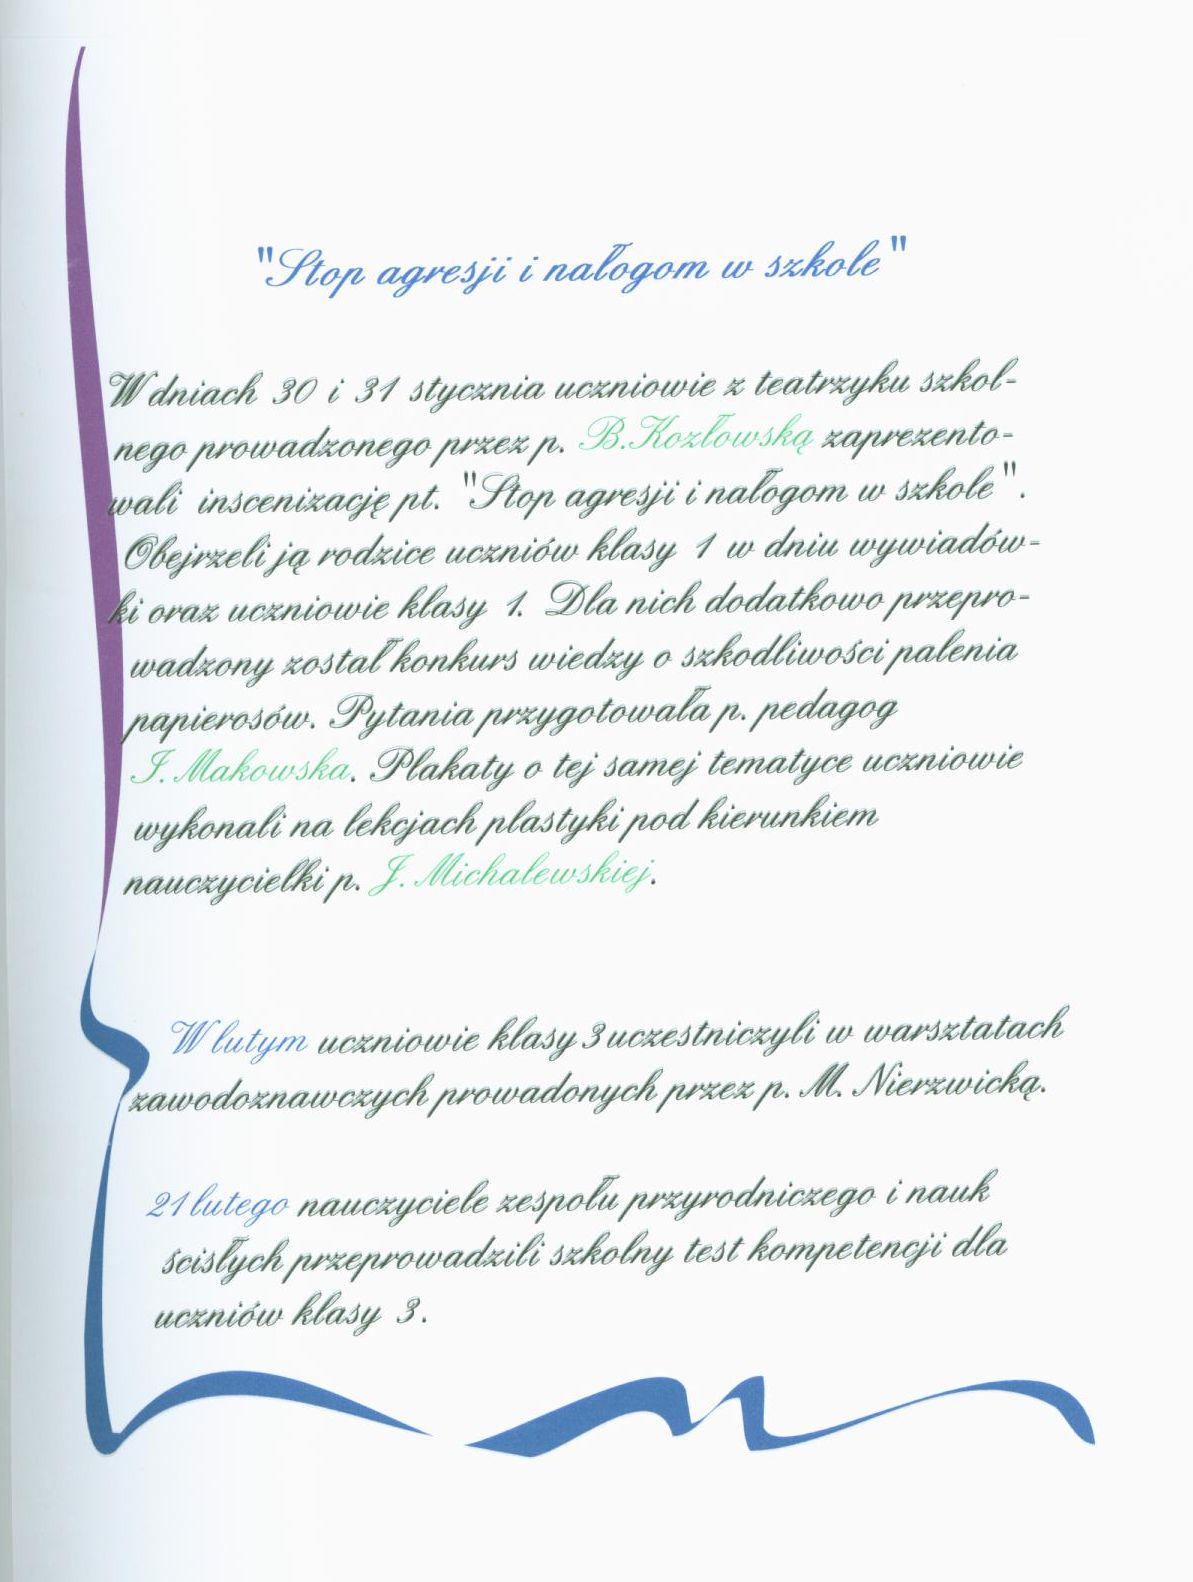 "Stop agresji i nałogom w szkole"
W dniach 30 i 31 stycznia uczniowie z teatrzyku szkol-
nego prowadzonego przez p. B.Kozłowską zaprezento-
wali inscenizację pt. "Stop agresji i nałogom w szkole".
Obejrzeli ją rodzice uczniów klasy 1 w dniu wywiadów-
ki oraz uczniowie klasy 1. Dla nich dodatkowo przepro-
wadzony został konkurs wiedzy o szkodliwości palenia
papierosów. Pytania przygotowała p. pedagog
I. Makowska. Plakaty o tej samej tematyce uczniowie
wykonali na lekcjach plastyki pod kierunkiem
nauczycielki p. J. Michalewskiej.
W lutym uczniowie klasy 3 uczestniczyli w warsztatach
zawodoznawczych prowadonych przez p. M. Nierzwicką.
21 lutego nauczyciele zespołu przyrodniczego i nauk
ścisłych przeprowadzili szkolny test kompetencji dla
uczniów klasy 3.